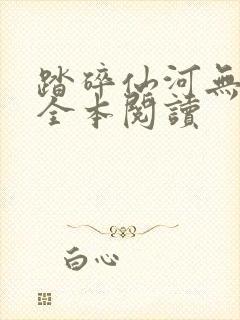 踏碎仙河無
全本閱讀
白心